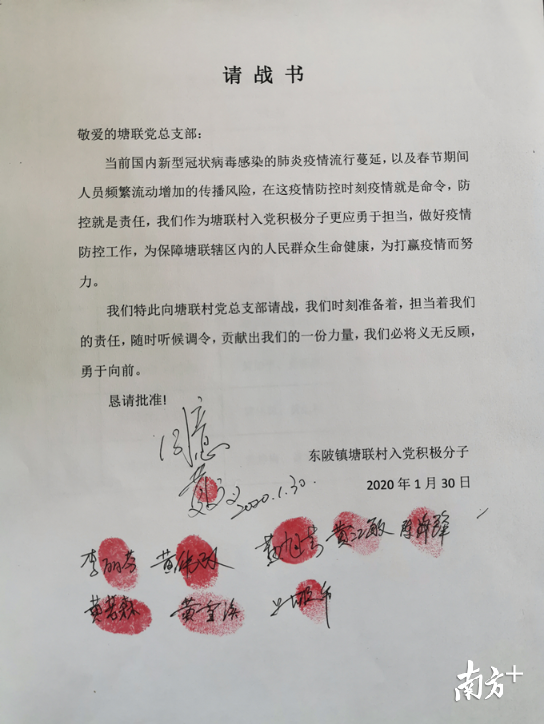 请战书
敬爱的塘联党总支部：
当前国内新型冠状病毒感染的肺炎疫情流行蔓延，以及春节期间
人员频繁流动增加的传播风险，在这疫情防控时刻疫情就是命令，防
控就是责任，我们作为塘联村入党积极分子更应勇于担当，做好疫情
防控工作，为保障塘联辖区内的人民群众生命健康，为打赢疫情而努
力。
我们特此向塘联村党总支部请战，我们时刻准备着，担当着我们
的责任，随时听候调令，贡献出我们的一份力量，我们必将义无反顾，
勇于向前。
恳请批准!
同意
东陂镇塘联村入党积极分子
2020.1.30.
2020年1月30日
李丽芳 黄旭 黄江敏
黄金
南方+